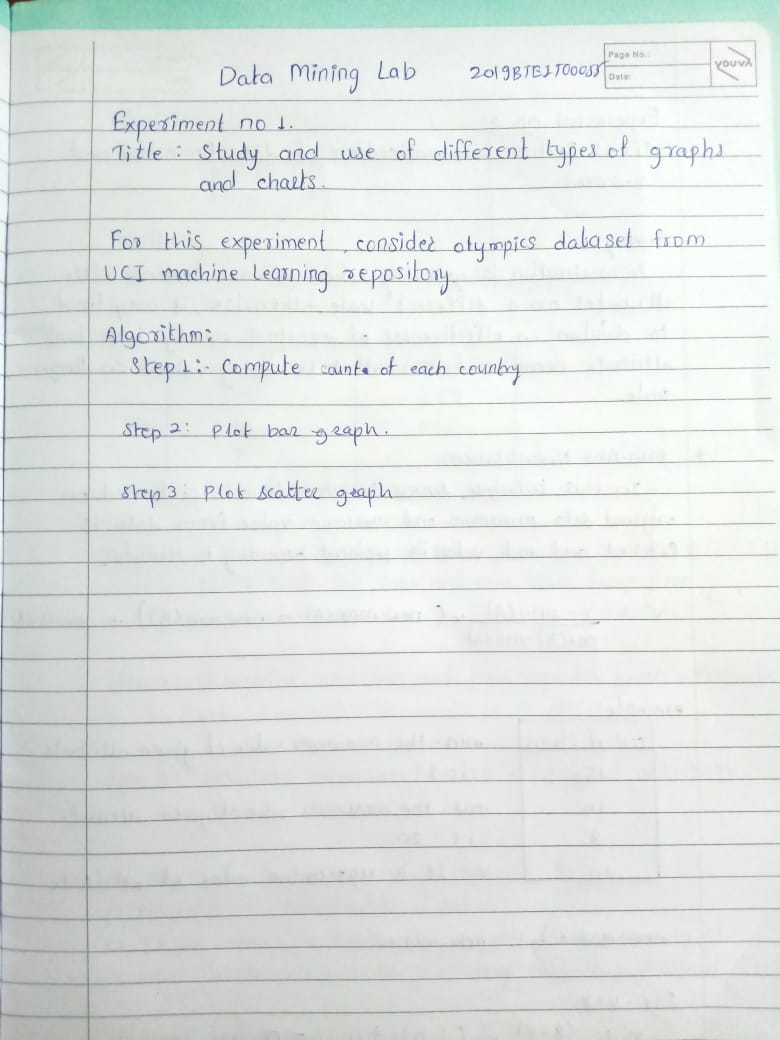 Page No.:
Date:
YOUVA
Data Mining Lab 2019BTEIT00055
Experiment no 1.
Title : Study and use of different types of graphs
and charts.
For this experiment, consider olympics dataset from
UCI machine Learning repository.
Algorithm:
Step 1:- Compute count of each country
Step 2: Plot bar graph.
Step 3: Plot scatter graph